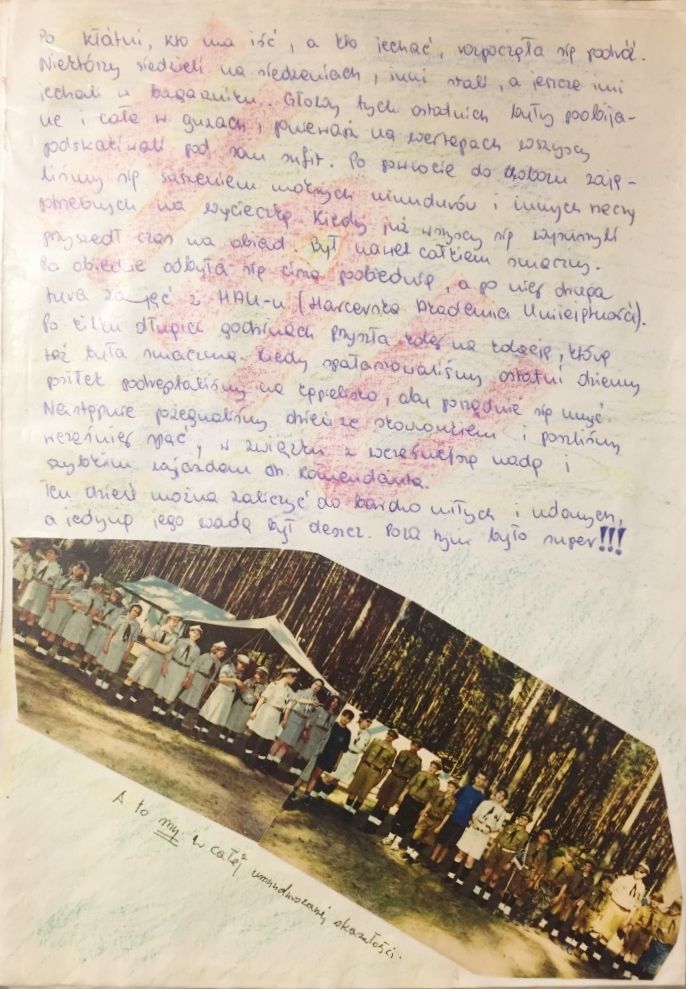 Po kłótni, kto ma iść, a kto jechać, rozpoczęła się podróż.
Niektórzy siedzieli na siedzeniach, inni stali, a jeszcze inni
jechali w bagażniku. Głowy tych ostatnich były poobija-
ne i całe w guzach, ponieważ na wertepach wszyscy
podskakiwali pod sam sufit. Po powrocie do obozu zaję-
liśmy się suszeniem mokrych mundurów i innych rzeczy
potrzebnych na wycieczkę. Kiedy już wszyscy się wysuszyli
przyszedł czas na obiad. Był nawet całkiem smaczny.
Po obiedzie odbyła się cisza poobiednia, a po niej druga
tura zajęć z HAU-u (Harcerska Akademia Umiejętności).
Po kilku długich godzinach przyszła kolej na kolację, która
też była smaczna. Kiedy spałaszowaliśmy ostatni dzienny
posiłek podreptaliśmy na kąpielisko, aby porządnie się umyć.
Następnie pożegnaliśmy dzień ze skowronkiem i poszliśmy
wcześniej spać, w związku z wcześniejszą wadą i
szybkim wyjazdem dh. Komendanta.
Ten dzień można zaliczyć do bardzo miłych i udanych,
a jedyną jego wadą był deszcz. Poza tym było super!!!
A to my w całej umundurowanej okazałości.